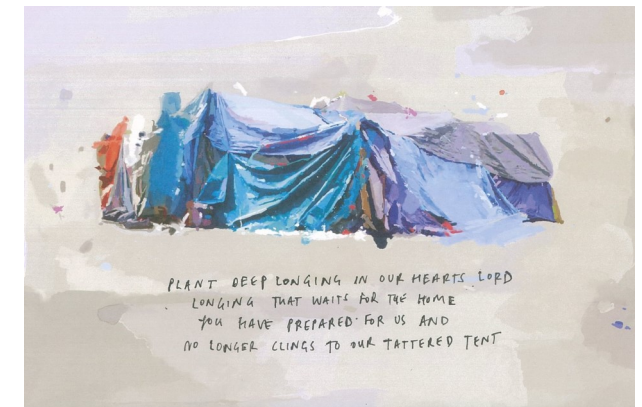 PLANT DEEP LONGING IN OUR HEARTS LORD
LONGING THAT WAITS FOR THE HOME
YOU HAVE PREPARED FOR US AND
NO LONGER CLINGS TO OUR TATTERED TENT